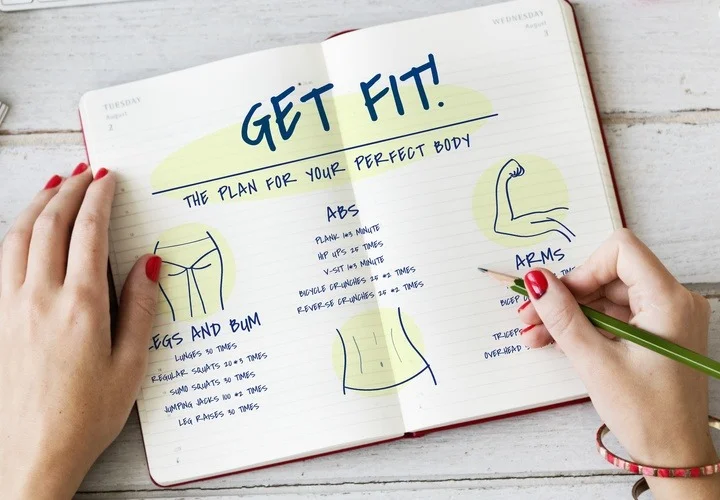 TUESDAY
August
2
WEDNESDAY
August
3
GET FIT!
THE PLAN FOR YOUR PERFECT BODY
LEGS AND BUM
LUNGES 30 TIMES
REGULAR SQUATS 20*3 TIMES
SUMO SQUATS 30 TIMES
JUMPING JACKS 100 *2 TIMES
LEG RAISES 30 TIMES
ABS
PLANK 1*3 MINUTE
HIP UPS 25 TIMES
V-SIT 1*3 MINUTE
BICYCLE CRUNCHES 25 *2 TIMES
REVERSE CRUNCHES 25 *2 TIMES
ARMS
TIMES
BICEP
TRICEPS
OVERHEAD